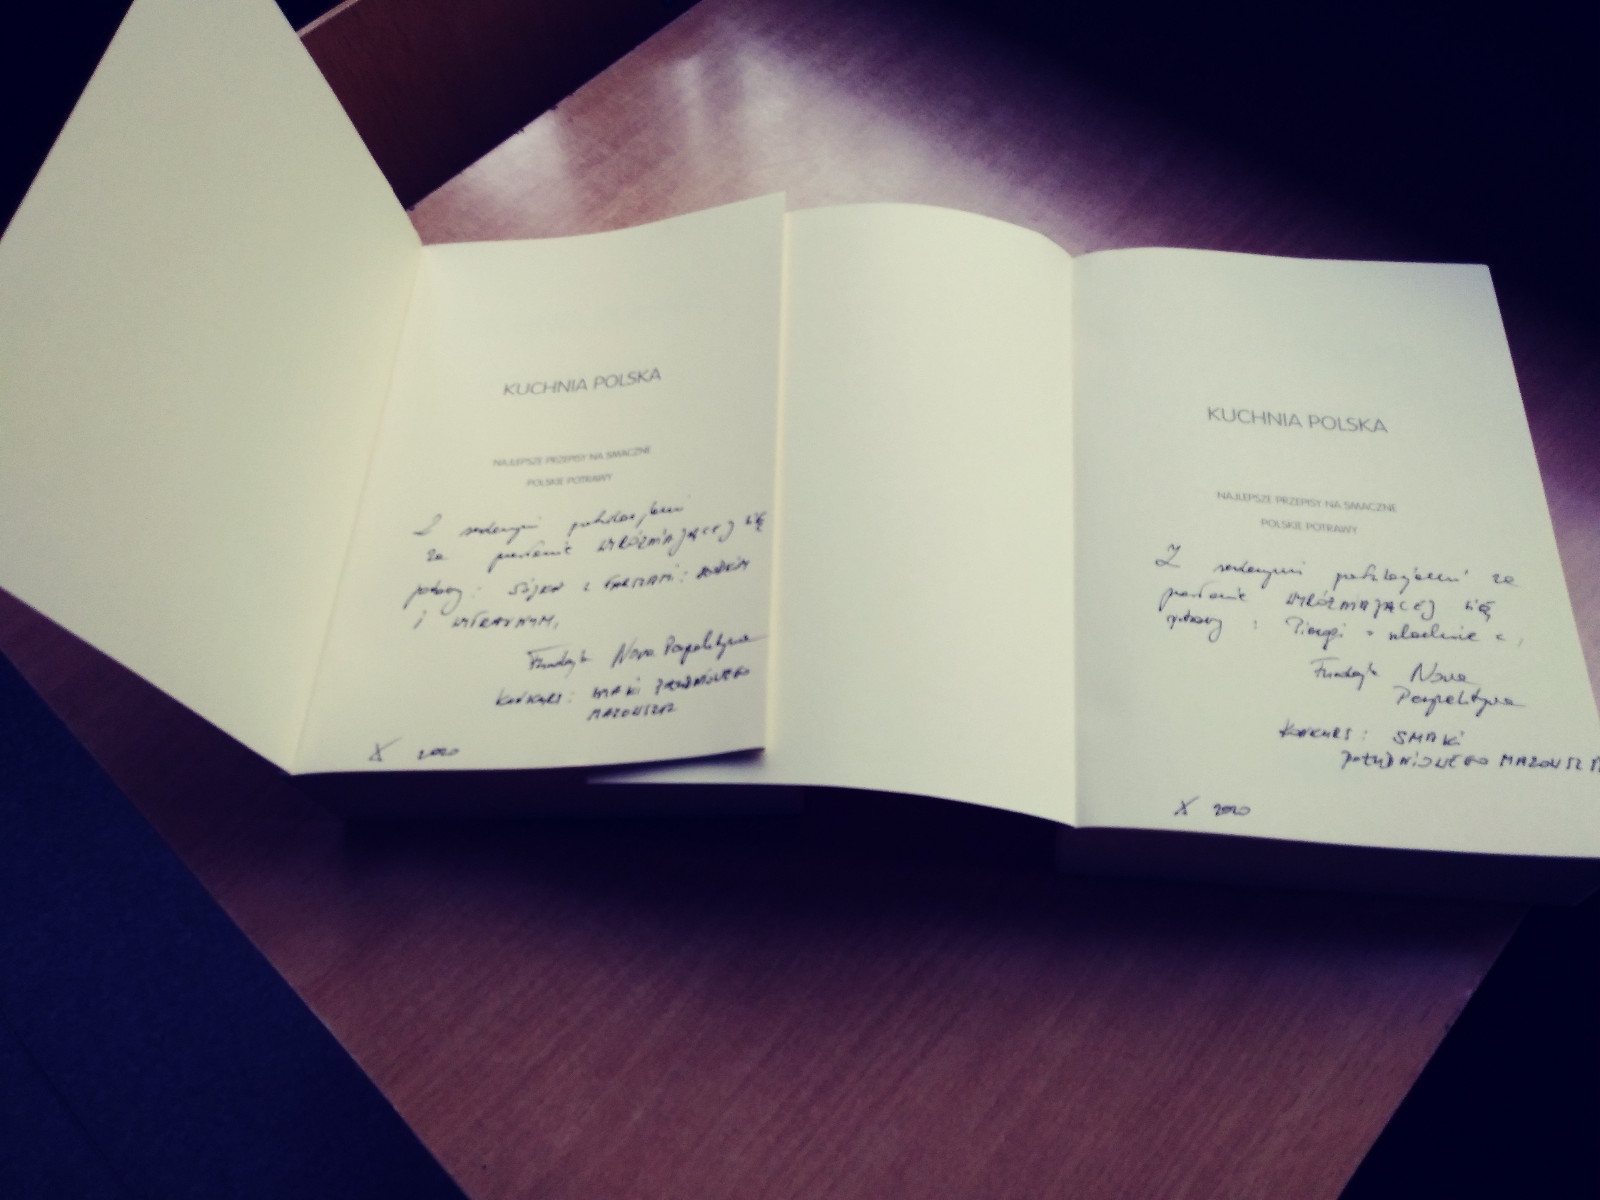 KUCHNIA POLSKA
NAJLEPSZE PRZEPISY NA SMACZNE
POLSKIE POTRAWY
Z serdecznymi podziękowaniami
za przesłanie WYRÓŻNIAJĄCEJ SIĘ
potrawy: SÓJKA Z FARSZAMI:
i WYTRAWNYM,
Fundacja Nowa Perspektywa
KONKURS: SMAKI POŁUDNIOWEGO
MAZOWSZA
X 2020
KUCHNIA POLSKA
NAJLEPSZE PRZEPISY NA SMACZNE
POLSKIE POTRAWY
Z serdecznymi podziękowaniami za
przesłanie WYRÓŻNIAJĄCEJ SIĘ
potrawy: Pierogi
Fundacja Nowa
Perspektywa
KONKURS: SMAKI
POŁUDNIOWEGO MAZOWSZA
X 2020